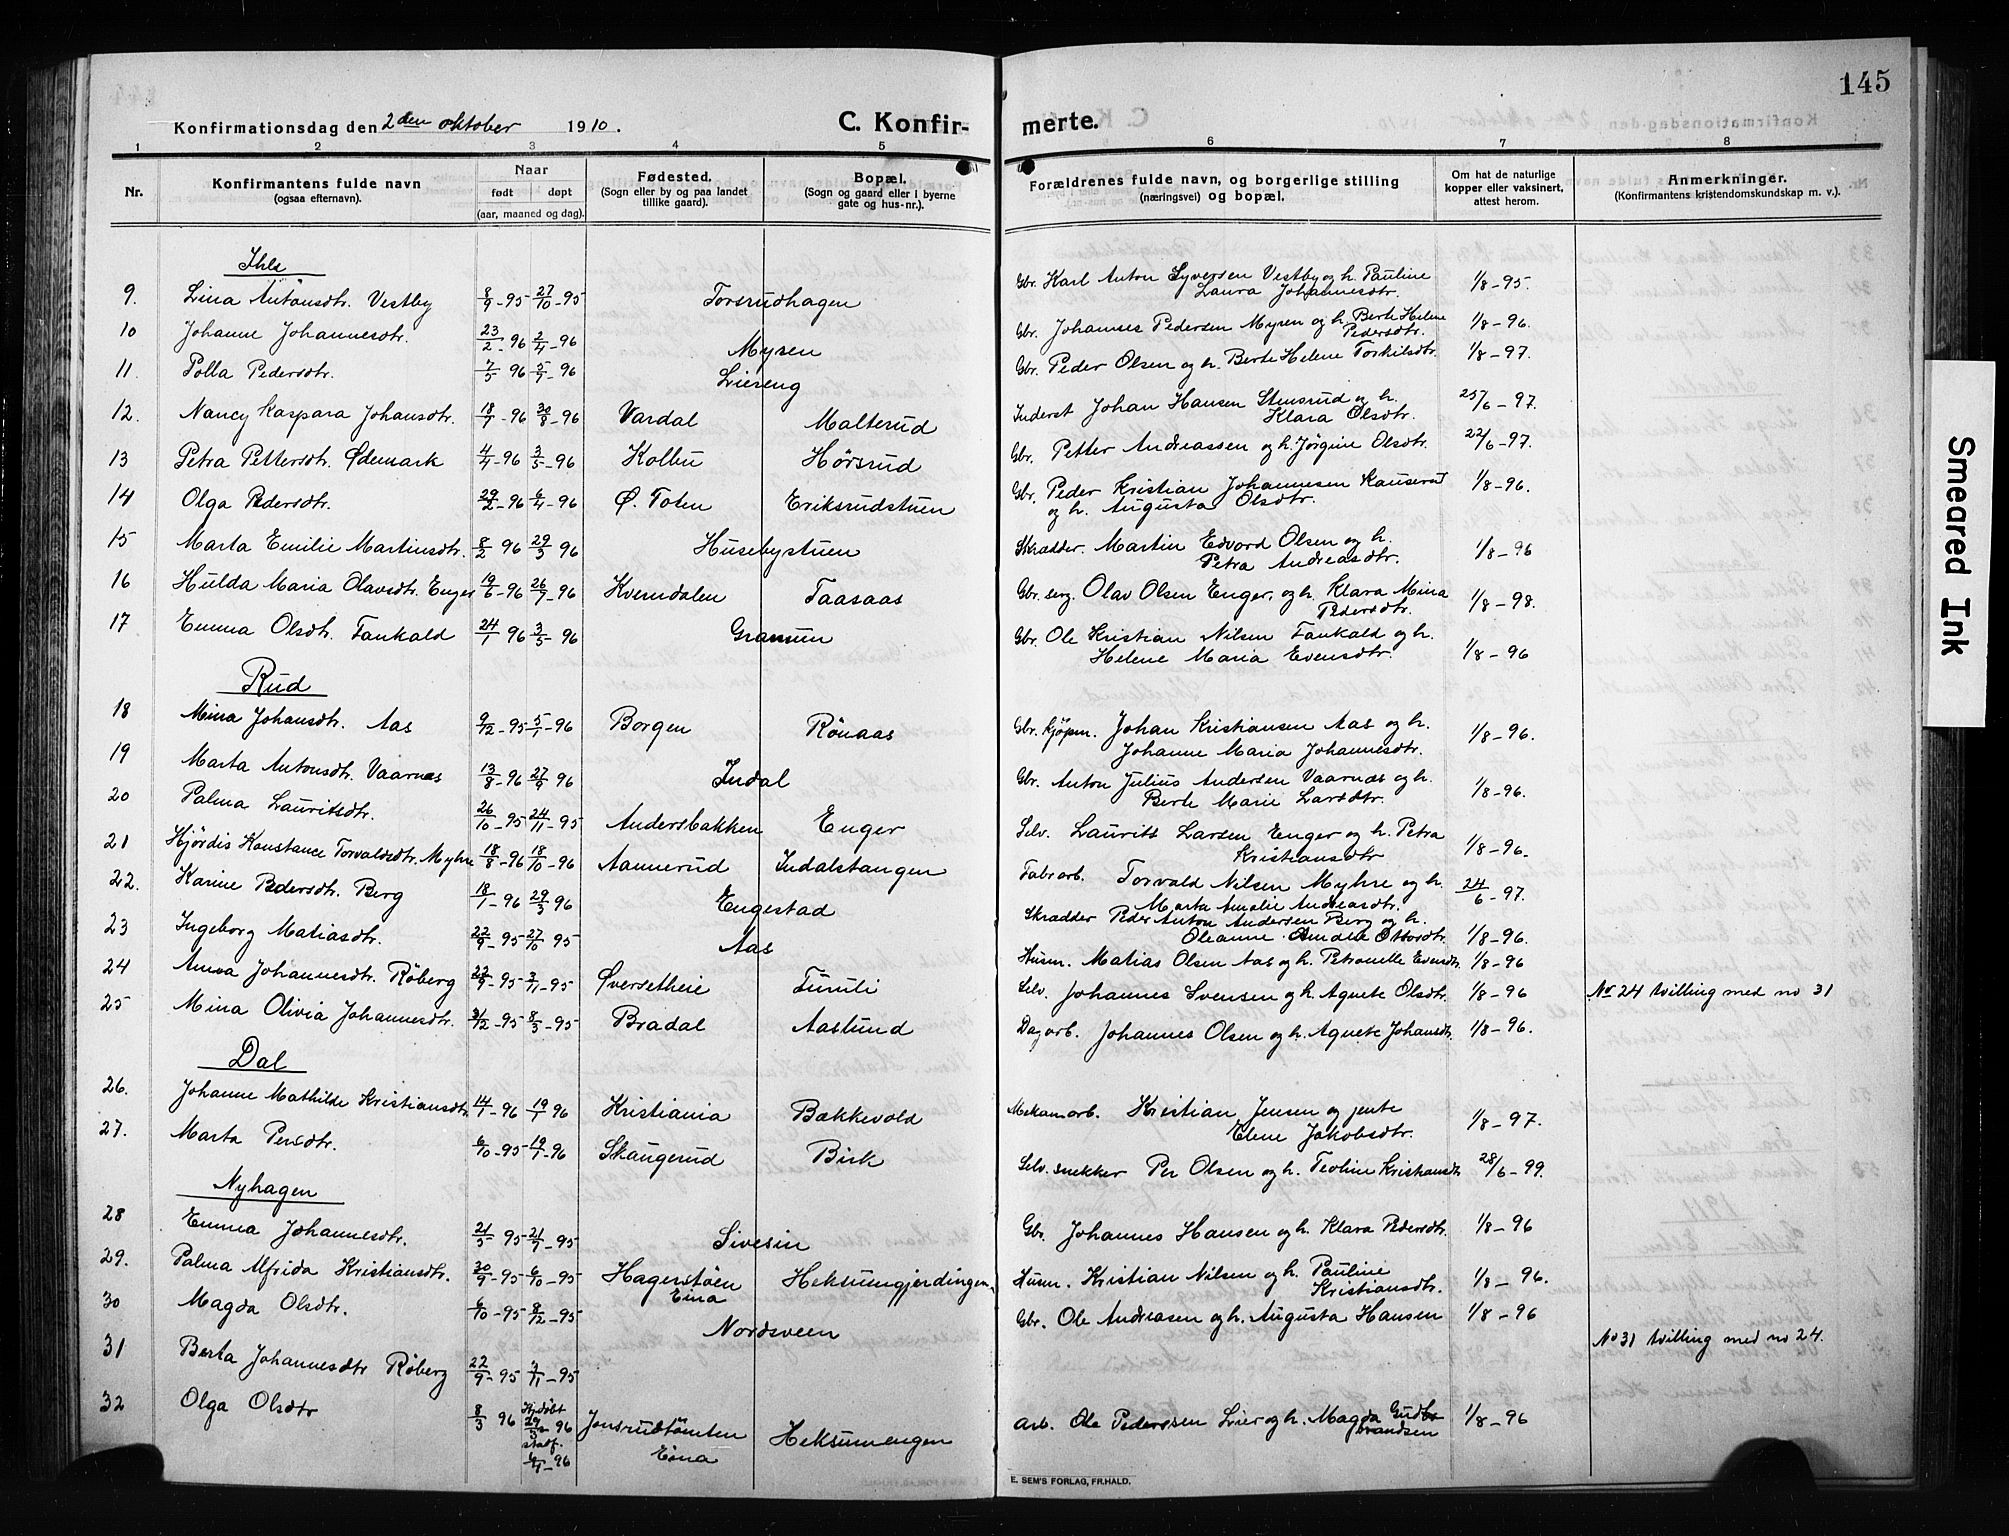 145
Konfirmationsdag den 2den oktober 1910.
C. Konfirmerte.
1 2 3 4 5 6 7 8
Nr.
Konfirmantens fulde navn
(ogsaa efternavn).
Naar
født døpt
(aar, maaned og dag).
Fødested.
(Sogn eller by og paa landet
tillike gaard).
Bopæl.
(Sogn og gaard eller i byerne
gate og hus-nr.).
Forældrenes fulde navn, og borgerlige stilling
(næringsvei) og bopæl.
Om hat de naturlige
kopper eller vaksinert,
attest herom.
Anmerkninger.
(Konfirmantens kristendomskundskap m. v.).
Ihle
9. Lina Antonsdtr. Vestby 8/9-95 27/10-95 Torsrudhagen Gbr. Karl Anton Syversen Vestby og h. Pauline
Laura Johannesdtr. 1/8-95.
10 Johanne Johannesdtr. 23/2-96 2/4-96 Myren Gbr. Johannes Pedersen Myren og h. Berte Helene
Pedersdtr. 1/8-96.
11. Polla Pedersdtr. 7/5 96 5/7-96 Lieseng Gbr. Peder Olsen og h. Berte Helene Torkilsdtr. 1/8-97.
12. Nancy Kaspara Johansdtr. 18/7-96 30/8-96 Vardal Malterud Inderst Johan Hansen Stensrud og h.
Klara Olsdtr. 25/6-97.
13 Petra Pettersdtr. Ødemark 4/4-96 3/5-96 Kolbu Hørsrud Gbr. Petter Andreassen og h. Jørgine Olsdtr. 22/6-97.
14 Olga Pedersdtr. 29/2-96 6/4-96 Ø. Toten Eriksrudstuen Gbr. Peder Kristian Johannesen Kauserud
og h. Augusta Olsdtr. 1/8-96.
15 Marta Emilie Martinsdtr. 8/2 96 29/3 96 Husebystuen Skrædder. Martin Edvord Olsen og h.
Petra Andreasdtr. 1/8-96
16 Hulda Maria Olavsdtr. Enger 19/6-96 26/7-96 Kverndalen Taasaas Gbr. serg. Olav Olsen Enger, og h. Klara Mina
Pedersdtr. 1/8-98.
17 Emma Olsdtr. Fankald 24/1 96 3/5 96 Gbr. Ole Kristian Nilsen Fankald og h.
Helene Maria Evensdtr. 1/8-96
Rud
18 Mina Johansdtr. Aas 9/12-95 5/1-96 Borgen Rønaas Gbr. kjøpm. Johan Kristiansen Aas og h.
Johanne Maria Johannesdtr. 1/8-96.
19 Marta Antonsdtr. Vaarnes 13/8-96 27/9 96 Indal Gbr. Anton Julius Andersen Vaarnes og h.
Berte Marie Larsdtr. 1/8-96.
20 Palma Lauritsdtr. 26/10-95 24/11-95 Andersbakken Enger Selv. Laurits Larsen Enger og h. Petra
Kristiansdtr 1/8-96.
21 Hjørdis Konstance Torvaldsdtr. Myhre 18/8-96 18/10-96 Aannerud Indalstangen Fabr arb. Torvald Nilsen Myhre og h.
Marta Amalie Andreasdtr. 24/6-97.
22. Karine Pedersdtr. Berg 18/1-96 29/3 96 Engestad Skrædder Peder Anton Andersen Berg og h.
Oleanne Amalie Ottosdtr. 1/8-96.
23 Ingeborg Matiasdtr. 22/9-95 27/10 95 Aas Husm. Matias Olsen Aas og h. Petronelle Evensdtr. 1/8-96
24 Anna Johannesdtr. Røberg 22/9-95 3/11-95 Øversetheie Tunli Selv. Johannes Svensen og h. Agnete Olsdtr. 1/8-96 No 24 tvilling med no 31
25 Mina Olivia Johannesdtr. 31/12-95 8/3-95 Bradal Aaslund Dagarb. Johannes Olsen og h. Agnete Johansdtr. 1/8-96.
Dal
26. Johanne Mathilde Kristiansdtr. 14/1-96 19/1 96 Kristiania Bækkevold Mekan arb. Kristian Jensen og jente
Elene Jakobsdtr. 1/8-97.
27. Marta Persdtr. 6/10-95 19/1-96 Skaugerud Birk Selv. snekker Per Olsen og h. Teoline Kristiansdtr 28/6-99.
Nyhagen
28 Emma Johannesdtr. 21/5 95 21/7-95 Sivesin Gbr. Johannes Hansen og h. Klara Pedersdtr. 1/8-96
29. Palma Alfrida Kristiansdtr. 30/9-95 6/10-95 Hagerstøen
Eina Heksumgjerdingen Husm. Kristian Nilsen og h. Pauline
Kristiansdtr. 1/8-96.
30 Magda Olsdtr. 6/10-95 8/12-95 Nordsveen Gbr. Ole Andreasen og h. Augusta Hansen 1/8-96
31 Berta Johannesdtr Røberg 22/9-95 3/11-95 No 31 tvilling med no 24.
32 Olga Olsdtr 8/3 96 Hj.døbt
29/3 96
stadf.
6/4-96 Jonsrudtømten
Eina Heksumengen Arb. Ole Pedersen Lier og h. Magda Gudbrandsen 1/8-96
E. SEM'S FORLAG, FR.HALD.
Smeared Ink